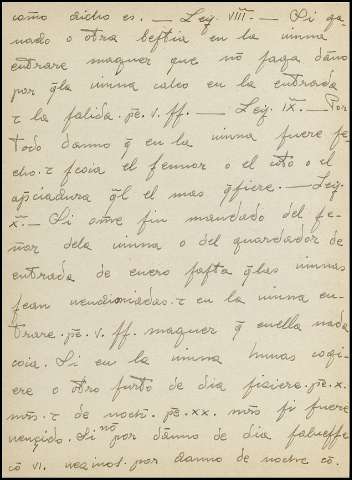 como dicho es. — Ley. VIII. — Si ga-
nado o otra beſtia en la uinna
entrare maguer que nō faga dāno
por q̄la uinna caleo en la entrada
τ la ſalida. pe. v. ſſ. — Ley. IX. — Por
todo danno q̄ en la uinna fuere fe-
cho. τ ſeaia el ſennor o el coto o el
apciadura q̄l el mas q̄ſiere. — Ley.
X. — Si ome ſin mandado del ſe-
ñor dela uinna o del guardador de
entrada de enero faſta q̄las uinnas
ſean uendimiadas. τ en la uinna en-
trare. pe. v. ſſ. maguer q̄ enella nada
coia. Si en la uinna huuas cogi-
ere o otro furto de dia fiziere. pe. x.
mr̄s. τ de noch. pe. xx. mr̄s ſi fuere
uençido. Si nō por dānno de dia ſalueſſe
cō VI. uezinos. por danno de noche cō.